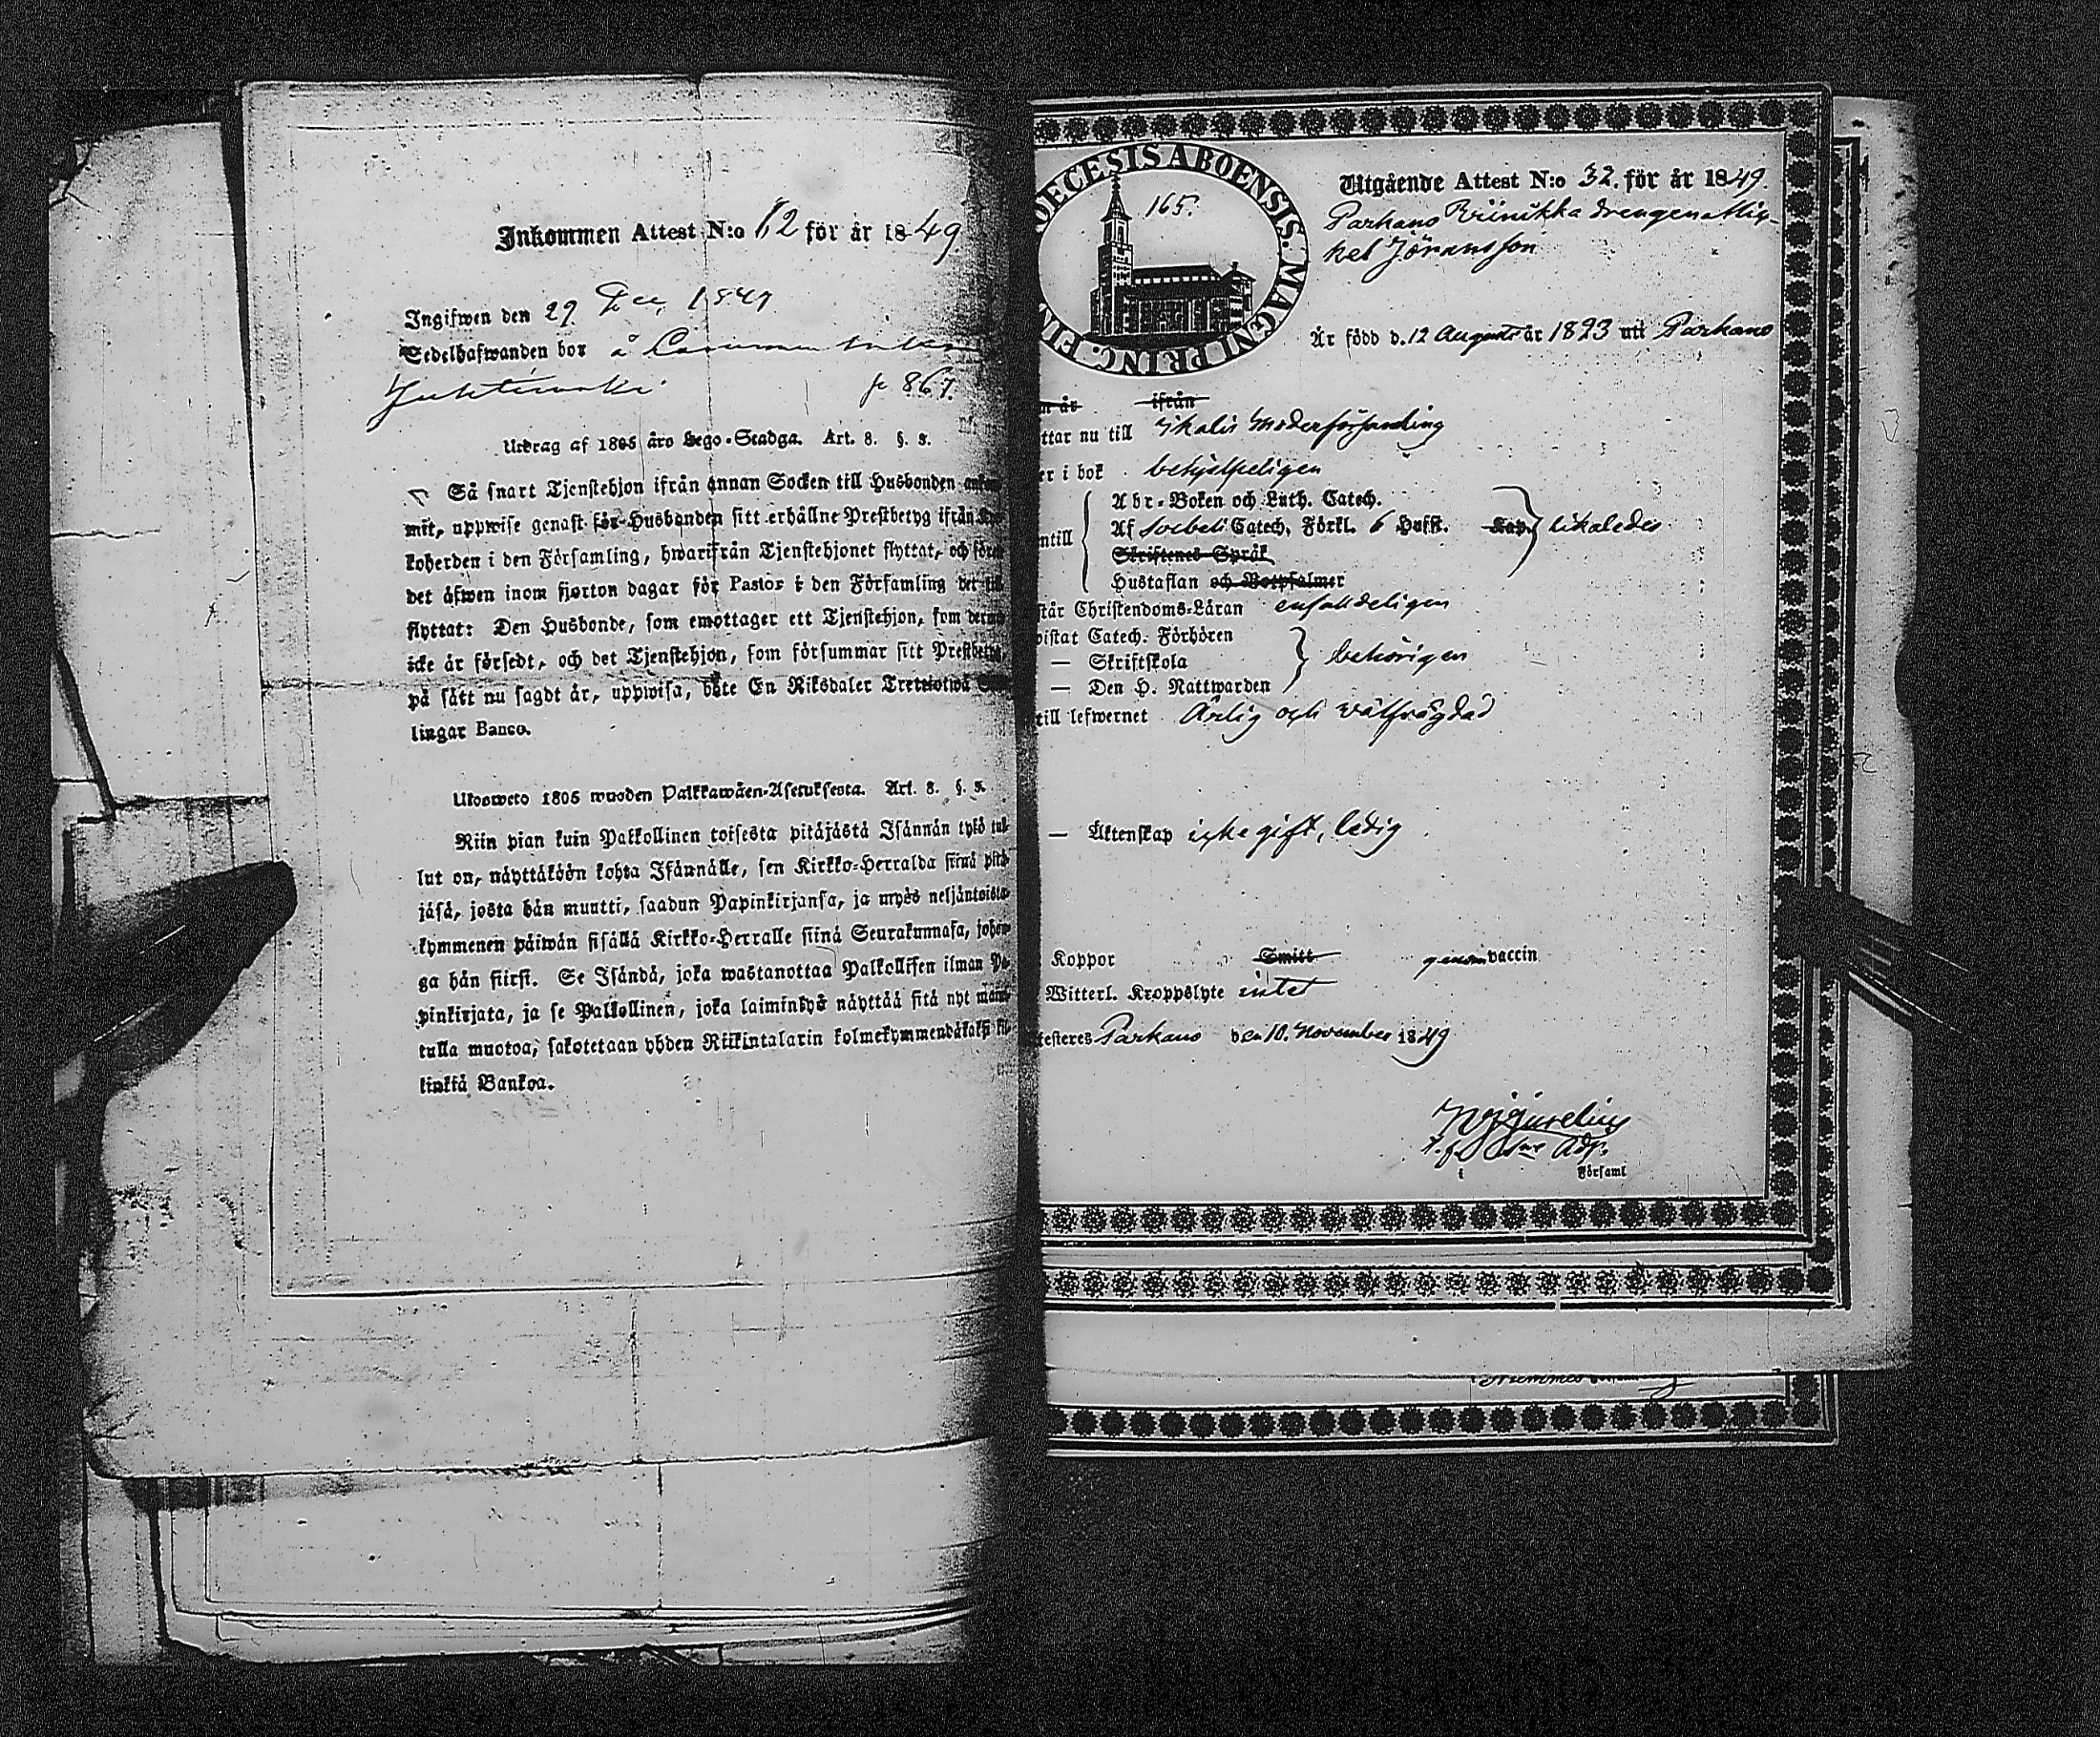 Inkommen Attest N:o 12 för år 1849
Ingifwen den 29 Dec. 1849
Sedelhafwanden bor å
fr 867.
Utdrag af 1805 års Lego-Stadga. Art. 8. §. 5.
Så snart Tjenstehjon ifrån annan Socken till Husbonden
mit, uppwise genast för Husbonden sitt erhållne Prestbetyg ifrån
koherden i den Församling, hwarifrån Tjenstehjonet flyttat, och
det äfwen inom fjorton dagar för Pastor i den Församling det
flyttat: Den Husbonde, som emottager ett Tjenstehjon, som
icke är försedt, och det Tjenstehjon, som försummar sitt Prestbetyg,
på sätt nu sagdt är, uppwisa, böte En Riksdaler Trettiotwå
lingar Banco.
Ulosweto 1805 wuoden Palkkawäen-Asetuksesta. Art. 8. §. 5.
Niin pian kuin Palkollinen toisesta pitäjästä Isännän tykö tul-
lut on, näyttäköön kohta Isännälle, sen Kirkko-Herralda siinä pitä-
jäsä, josta hän muutti, saadun Papinkirjansa, ja myös neljäntoista-
kymmenen päiwän sisällä Kirkko-Herralle siinä Seurakunnasa, johon-
ga hän siirsi. Se Isändä, joka wastanottaa Palkollisen ilman Pa-
pinkirjata, ja se Palkollinen, joka laiminlyö näyttää sitä nyt
tulla muotoa, sakotetaan yhden Riikintalarin kolmekymmendäkaksi kil-
linkiä Bankoa.
DECESIS ABOENSIS. MAGNI PRINC. FIN
165.
Utgående Attest N:o 32. för år 1849.
Parkano Riinikka drengen Mic-
kel Jöransson
Är född d. 12 Augusti år 1823 uti Parkano
n år ifrån
ttar nu till Ikalis Moderförsamling
er i bok behjelpeligen
Abc-Boken och Luth. Catech.
ntill Af Sorbeli Catech. Förkl. 6 Hufst. Kap. likaledes
Skriftenes Språk
Hustaflan och Botpsalmer
står Christendoms-Läran enfaldeligen
istat Catech. Förhören
— Skriftskola behörigen
— Den H. Nattwarden
till lefwernet Ärlig och välfrägdad
— Äktenskap icke gift, ledig
Koppor Smitt genom vaccin
Witterl. Kroppslyte intet
testeres Parkano den 10. November 1849
i Församl